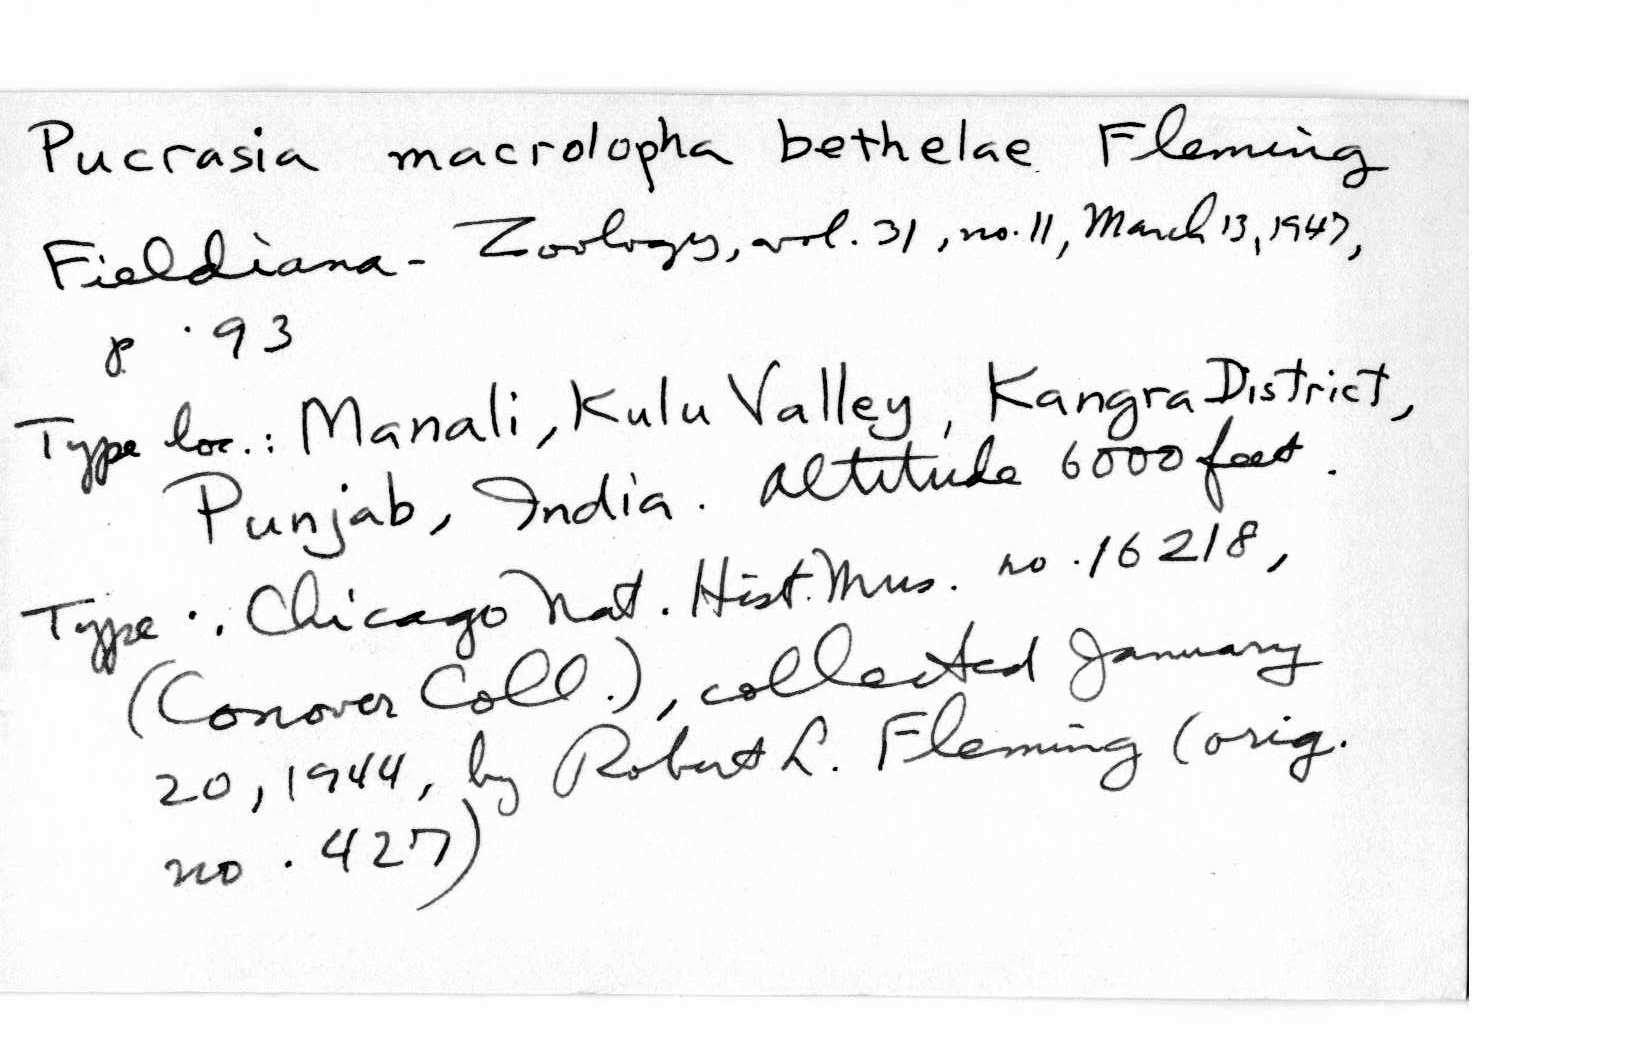 Pucrasia macrolopha bethelae Fleming
Fieldiana - Zoology, vol. 31, no. 11, March 13, 1947,
p. 93
Type loc.: Manali, Kulu Valley, Kangra District,
Punjab, India. Altitude 6000 feet.
Type: Chicago Nat. Hist. Mus. no. 16218,
(Conover Coll.), collected January
20, 1944, by Robert L. Fleming (orig.
no. 427)